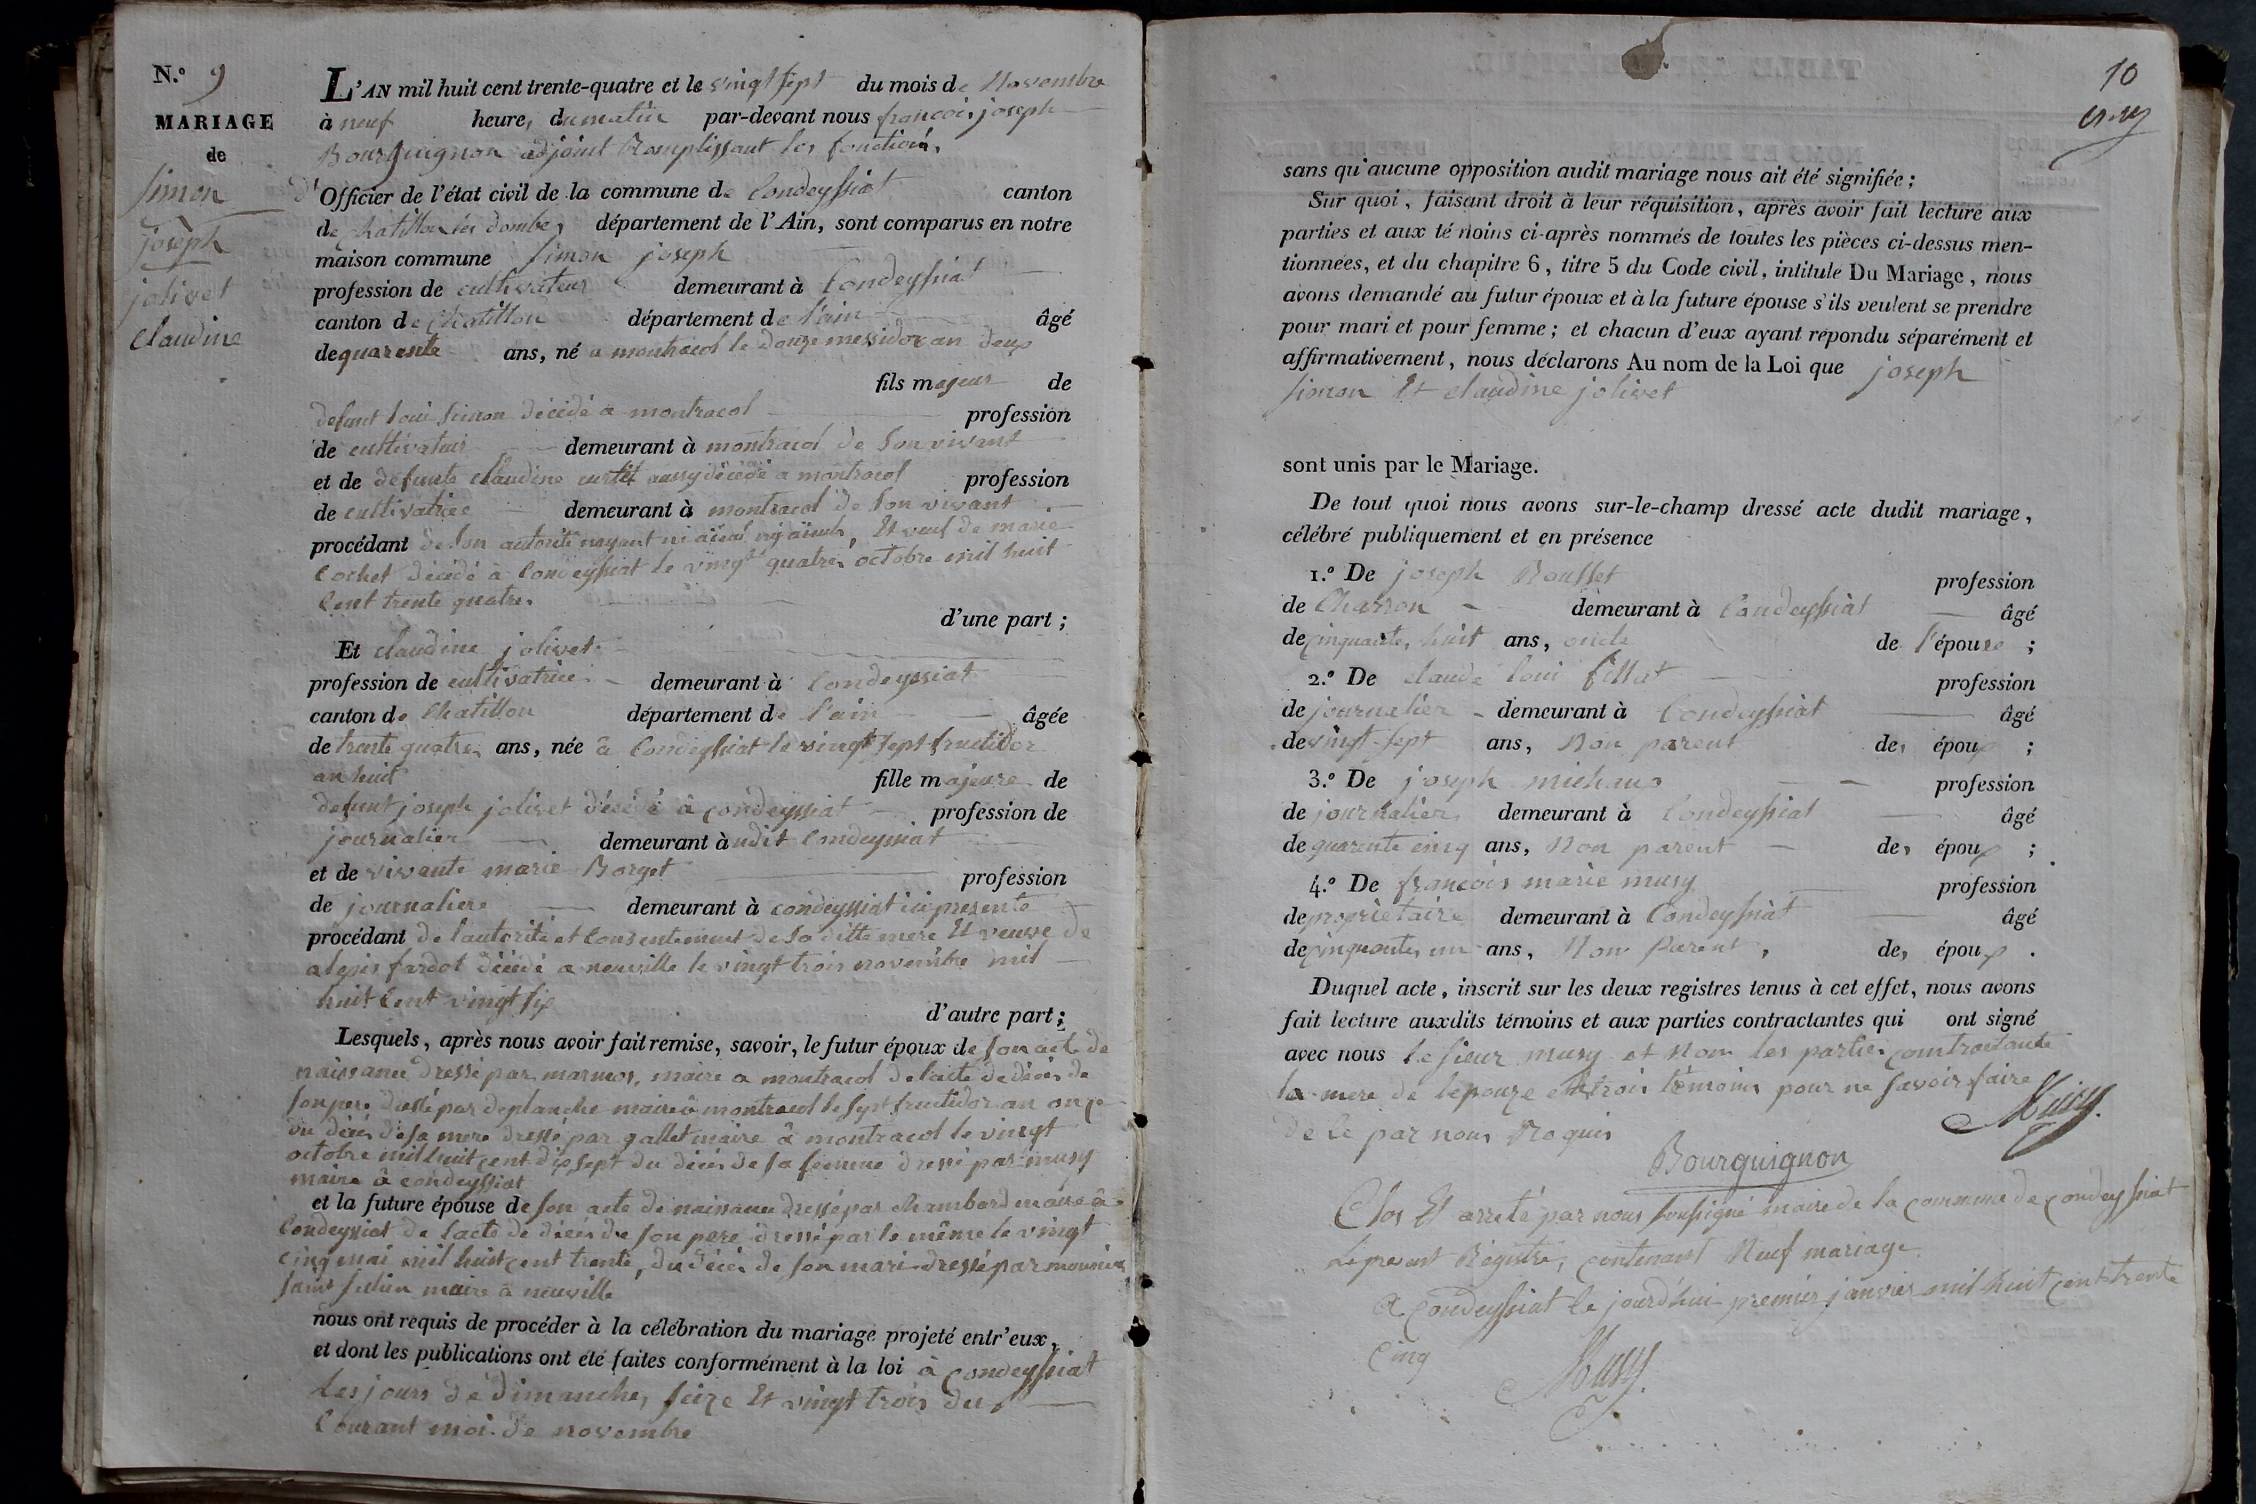 N.° 9
MARIAGE
de
Simon
joseph
jolivet
claudine
L'AN mil huit cent trente-quatre et le vingt sept du mois de Novembre
à neuf heures du matin par-devant nous françois joseph
Bourguignon adjoint Ramplissant les fonctions
d'Officier de l'état civil de la commune de Condeyssiat canton
de chatillon les dombes département de l'Ain, sont comparus en notre
maison commune Simon joseph
profession de cultivateur demeurant à Condeyssiat
canton de chatillon département de l'ain âgé
de quarente ans, né a montracol le douze messidor an deux
fils majeur de
defunt loui Simon décédé a montracol profession
de cultivateur demeurant à montracol de Son vivant
et de defunte claudine curtet aussy décédé a montracol profession
de cultivatrice demeurant à montracol de Son vivant
procédant de Son autorité nayant ni aïeul ny aïeule, Et veuf de marie
Cochet décédé à Condeyssiat le vingt quatre octobre mil huit
Cent trente quatre
d'une part ;
Et claudine jolivet
profession de cultivatrice demeurant à Condeyssiat
canton de Chatillon département de l'ain âgée
de trente quatre ans, née à Condeyssiat le vingt Sept fructidor
an huit fille majeure de
defunt joseph jolivet décédé à condeyssiat profession de
journalier demeurant à udit Condeyssiat
et de vivante marie Borget profession
de journaliere demeurant à condeyssiat ici presente
procédant de l'autorité et Consentement de Sa ditte mere Et veuve de
alexis fardot décédé a neuville le vingt trois novembre mil
huit Cent vingt Six
d'autre part ;
Lesquels, après nous avoir fait remise, savoir, le futur époux de Son acte de
naissance dressé par marmos, maire a montracol de lacte de décès de
Son pere dressé par deplanche maire a montracol le Sept fructidor an onze
du décès de Sa mere dressé par gallet maire à montracol le vingt
octobre mil huit cent dix Sept du décès de Sa femme dressé par musy
maire à condeyssiat
et la future épouse de Son acte de naissance dressé par chambard maire à
Condeyssiat de lacte de décès de Son pere dressé par le même le vingt
cinq mai mil huit cent trente, du décès de Son mari dressé par
Saint Julien maire à neuville
nous ont requis de procéder à la célébration du mariage projeté entr'eux,
et dont les publications ont été faites conformément à la loi à Condeyssiat
Les jours de dimanche, Seize Et vingt trois du
Courant moi de novembre
10
sans qu'aucune opposition audit mariage nous ait été signifiée ;
Sur quoi, faisant droit à leur réquisition, après avoir fait lecture aux
parties et aux témoins ci-après nommés de toutes les pièces ci-dessus men-
tionnées, et du chapitre 6, titre 5 du Code civil, intitulé Du Mariage, nous
avons demandé au futur époux et à la future épouse s'ils veulent se prendre
pour mari et pour femme ; et chacun d'eux ayant répondu séparément et
affirmativement, nous déclarons Au nom de la Loi que joseph
Simon Et claudine jolivet
sont unis par le Mariage.
De tout quoi nous avons sur-le-champ dressé acte dudit mariage,
célébré publiquement et en présence
1.° De joseph Rousset profession
de Charron demeurant à Condeyssiat âgé
de cinquante huit ans, oncle de l'épouse ;
2.° De claude loui fillat profession
de journalier demeurant à Condeyssiat âgé
de vingt-sept ans, Non parent des époux ;
3.° De joseph michaus profession
de journalier demeurant à Condeyssiat âgé
de quarente cinq ans, Non parent des époux ;
4.° De françois marie musy profession
de propriétaire demeurant à Condeyssiat âgé
de cinquante un ans, Non Parent, des époux .
Duquel acte, inscrit sur les deux registres tenus à cet effet, nous avons
fait lecture auxdits témoins et aux parties contractantes qui ont signé
avec nous le Sieur musy et Non les parties contractante
la mere de lepouze et trois témoins pour ne Savoir faire
de ce par nous Requis
Musy
Bourguignon
Clos Et arreté par nous Soussigné maire de la commune de condeyssiat
Le present Régistre, contenant Neuf mariage
a Condeyssiat le jourdhui premier janvier mil huit cent trente
cinq
Musy